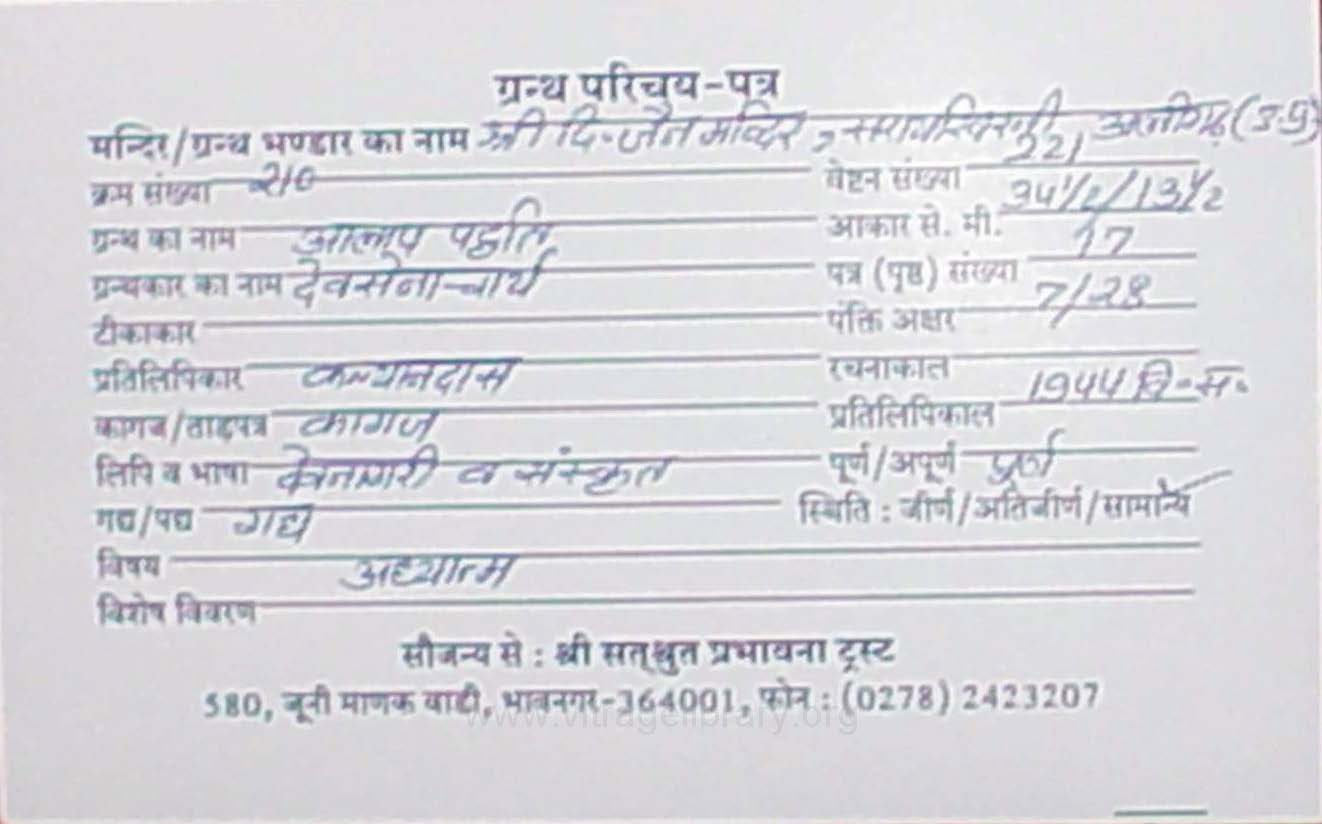 ग्रन्थ परिचय-पत्र
मन्दिर/ग्रन्थ भण्डार का नाम श्री दि. जैन मन्दिर, अलीगढ़ (उ.प्र)
क्रम संख्या 210 वेष्टन संख्या 221
ग्रन्थ का नाम आलाप पद्धति आकार से. मी. 34½/13½
ग्रन्थकार का नाम देवसेनाचार्य पत्र (पृष्ठ) संख्या 17
टीकाकार पंक्ति अक्षर 7/28
प्रतिलिपिकार कल्यानदास रचनाकाल
कागज/ताड़पत्र कागज प्रतिलिपिकाल 1944 वि.सं.
लिपि व भाषा देवनागरी व संस्कृत पूर्ण/अपूर्ण पूर्ण
गद्य/पद्य गद्य स्थिति : जीर्ण/अतिजीर्ण/सामान्य
विषय अध्यात्म
विशेष विवरण
सौजन्य से : श्री सत्श्रुत प्रभावना ट्रस्ट
580, जूनी माणक वाडी, भावनगर-364001, फोन : (0278) 2423207
www.vitragelibrary.org